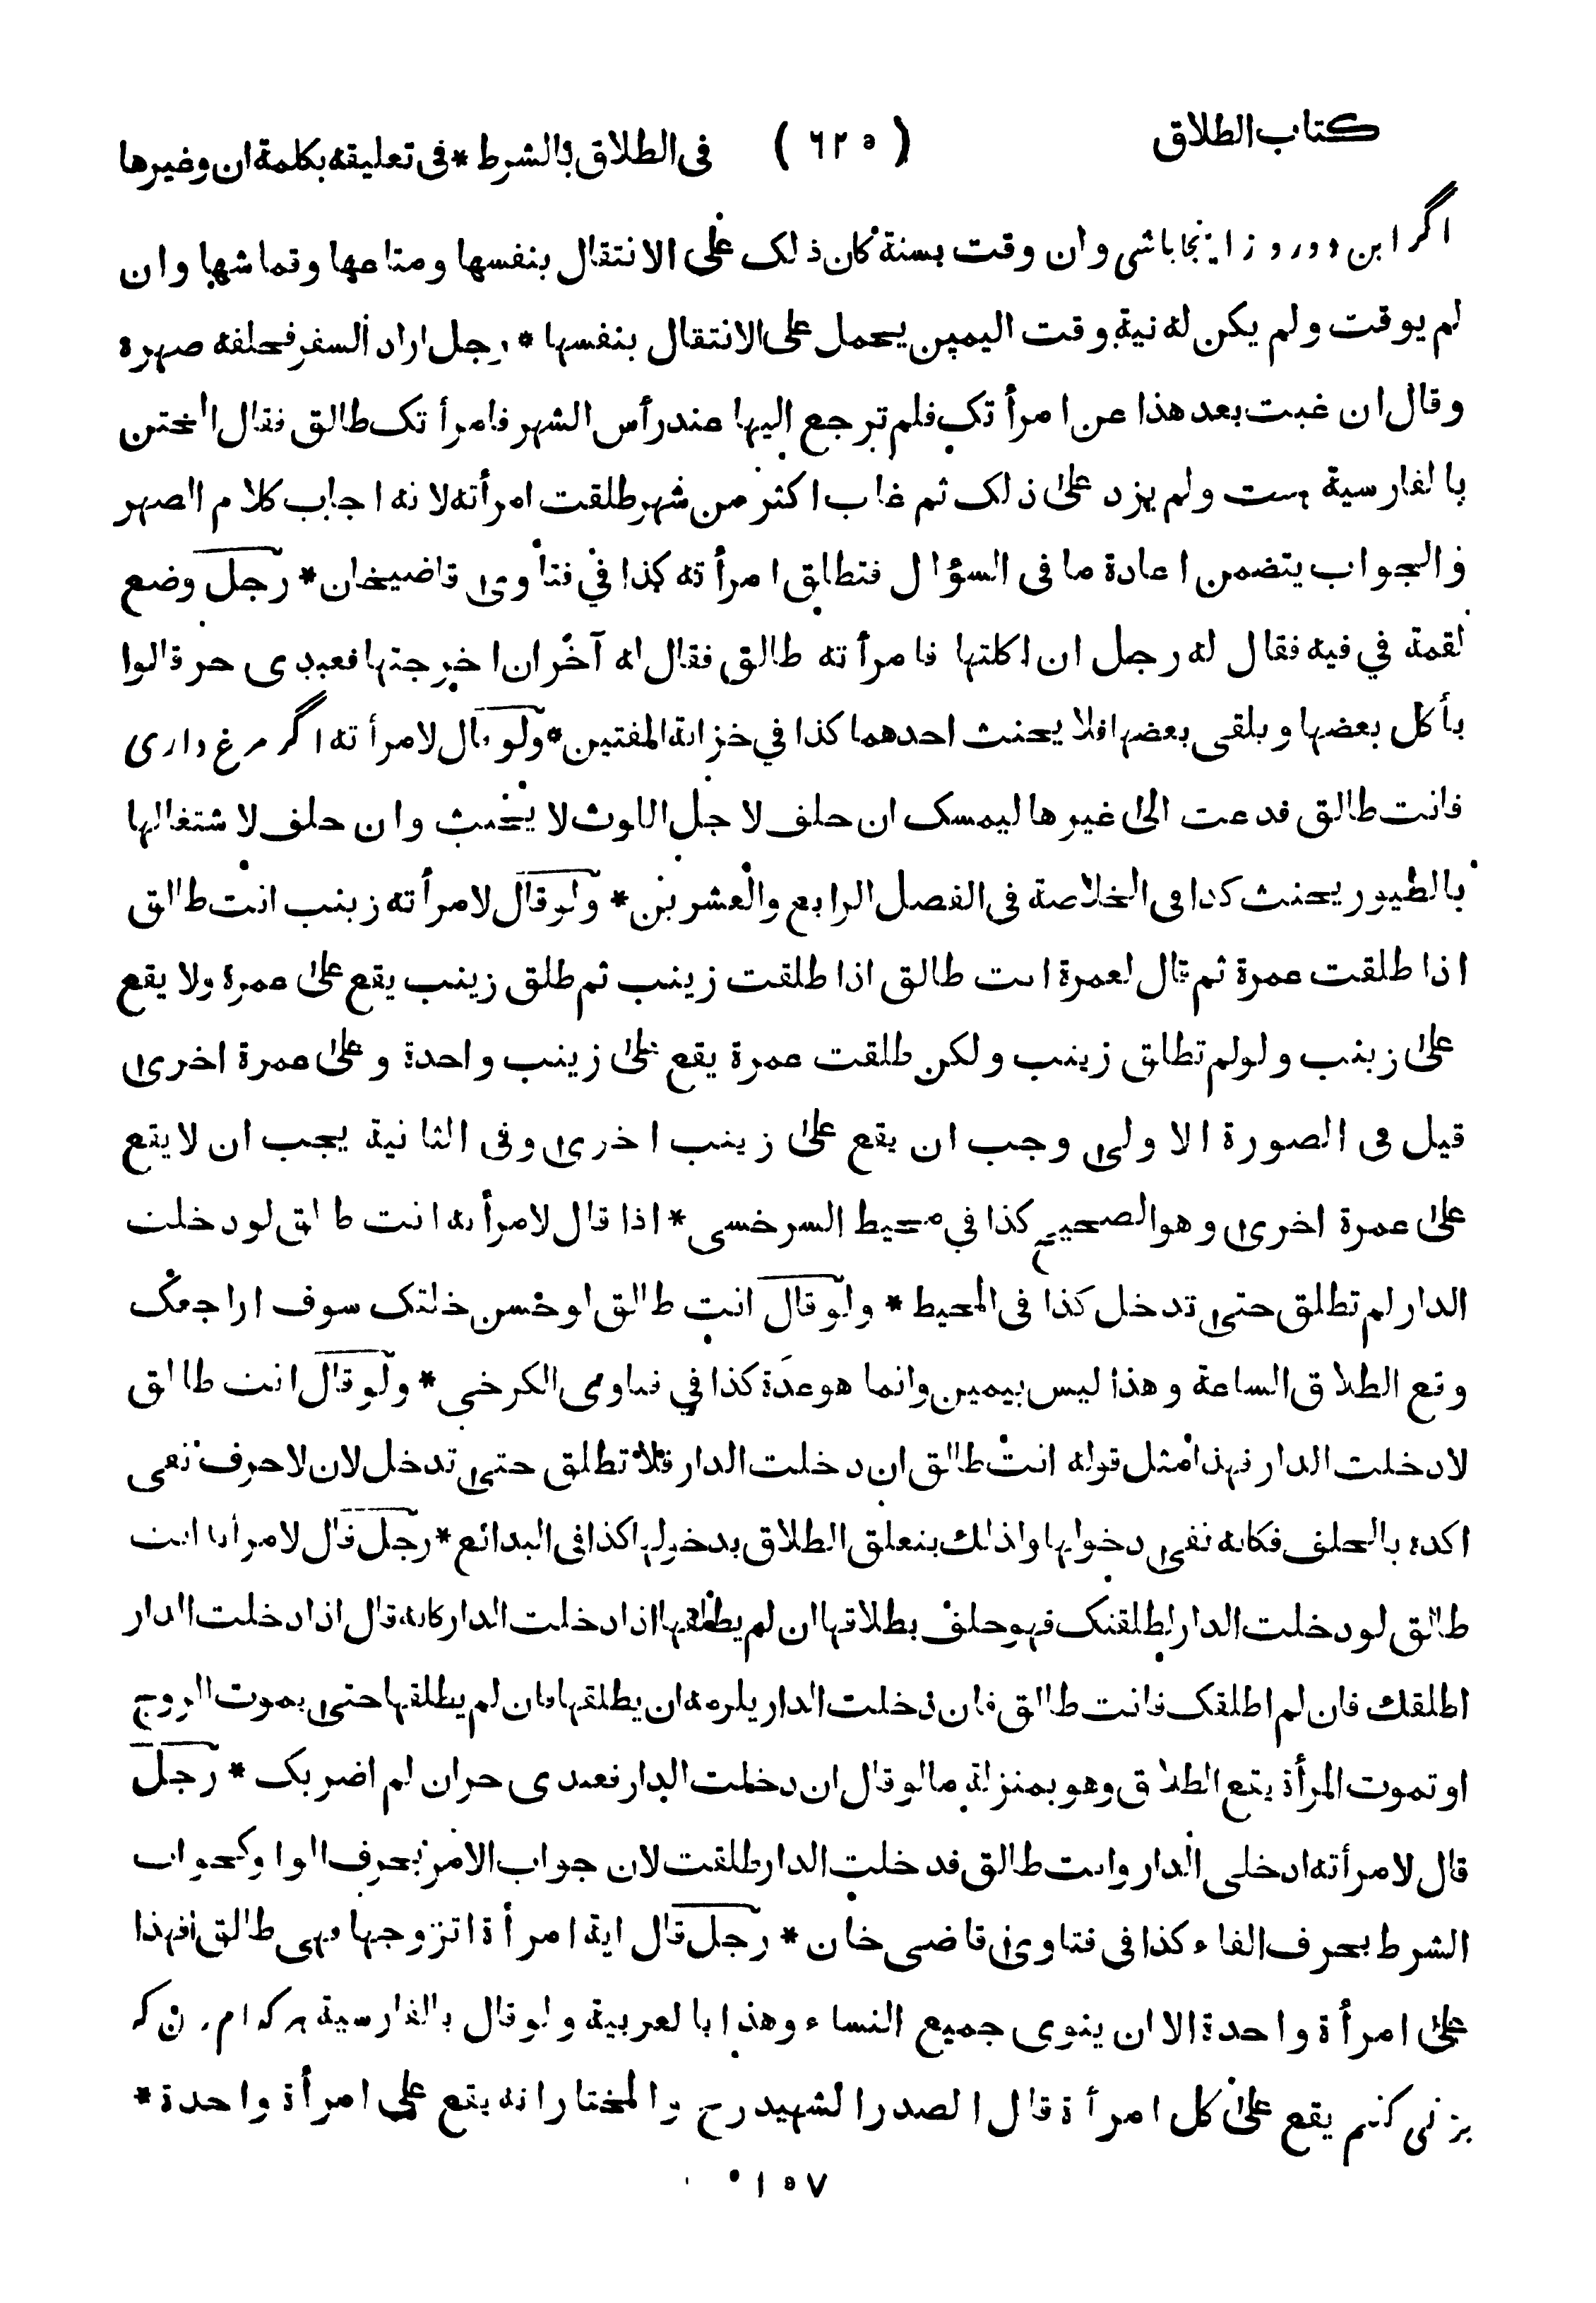 كتاب الطلاق (٦٢٥) في الطلاق بالشرط * في تعليقه بكلمة ان وغيرها
اگر اين دو روز اينجا باشي وان وقت بسنة كان ذلك على الانتقال بنفسها ومتاعها وقماشها وان
لم يوقت ولم يكن له نية وقت اليمين يحمل على الانتقال بنفسها * رجل اراد السفر فحلفه صهره
وقال ان غبت بعد هذا عن امرأتك فلم ترجع اليها عند رأس الشهر فامرأتك طالق فقال الختن
بالفارسية هست ولم يزد على ذلك ثم غاب اكثر من شهر طلقت امرأته لانه اجاب كلام الصهر
والجواب يتضمن اعادة ما في السؤال فتطلق امرأته كذا في فتاوى قاضيخان * رجل وضع
لقمة في فيه فقال له رجل ان اكلتها فامرأته طالق فقال له آخر ان اخرجتها فعبدي حر قالوا
يأكل بعضها ويلقى بعضها فلا يحنث احدهما كذا في خزانة المفتين * ولو قال لامرأته اگر مرغ داري
فانت طالق فدعت الى غيرها ليمسك ان حلف لاجل اللوث لا يحنث وان حلف لاشتغالها
بالطيور يحنث كذا في الخلاصة في الفصل الرابع والعشرين * ولو قال لامرأته زينب انت طالق
اذا طلقت عمرة ثم قال لعمرة انت طالق اذا طلقت زينب ثم طلق زينب يقع على عمرة ولا يقع
على زينب ولو لم تطلق زينب ولكن طلقت عمرة يقع على زينب واحدة وعلى عمرة اخرى
قيل في الصورة الاولى وجب ان يقع على زينب اخرى وفي الثانية يجب ان لا يقع
على عمرة اخرى وهو الصحيح كذا في محيط السرخسي * اذا قال لامرأته انت طالق لو دخلت
الدار لم تطلق حتى تدخل كذا في المحيط * ولو قال انت طالق او حسن خلتك سوف اراجعك
وقع الطلاق الساعة وهذا ليس بيمين وانما هو عدة كذا في فتاوى الكرخي * ولو قال انت طالق
لا دخلت الدار فهذا مثل قوله انت طالق ان دخلت الدار فلا تطلق حتى تدخل لان لا حرف نفي
اكده بالحلف فكانه نفى دخولها ولذلك يتعلق الطلاق بدخولها كذا في البدائع * رجل قال لامرأته انت
طالق لو دخلت الدار لطلقتك فهو حلف بطلاقها ان لم يطلقها اذا دخلت الدار كانه قال اذا دخلت الدار
اطلقك فان لم اطلقك فانت طالق فان دخلت الدار يلزمه ان يطلقها فان لم يطلقها حتى يموت الزوج
او تموت المرأة يقع الطلاق وهو بمنزلة ما لو قال ان دخلت الدار فعبدي حر ان لم اضربك * رجل
قال لامرأته ادخلي الدار وانت طالق فدخلت الدار طلقت لان جواب الامر بحرف الواو كجواب
الشرط بحرف الفاء كذا في فتاوى قاضي خان * رجل قال اية امرأة اتزوجها فهي طالق فهذا
على امرأة واحدة الا ان ينوى جميع النساء وهذا بالعربية ولو قال بالفارسية هر كدام زن كه
بزني كنم يقع على كل امرأة قال الصدر الشهيد رح والمختار انه يقع على امرأة واحدة *
١٥٧